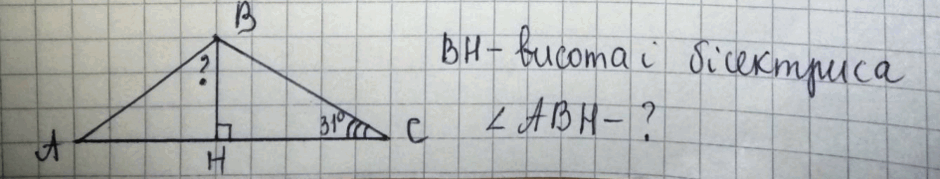 B
BH - висота і бісектриса
?
31°
∠ABH - ?
A
H
C